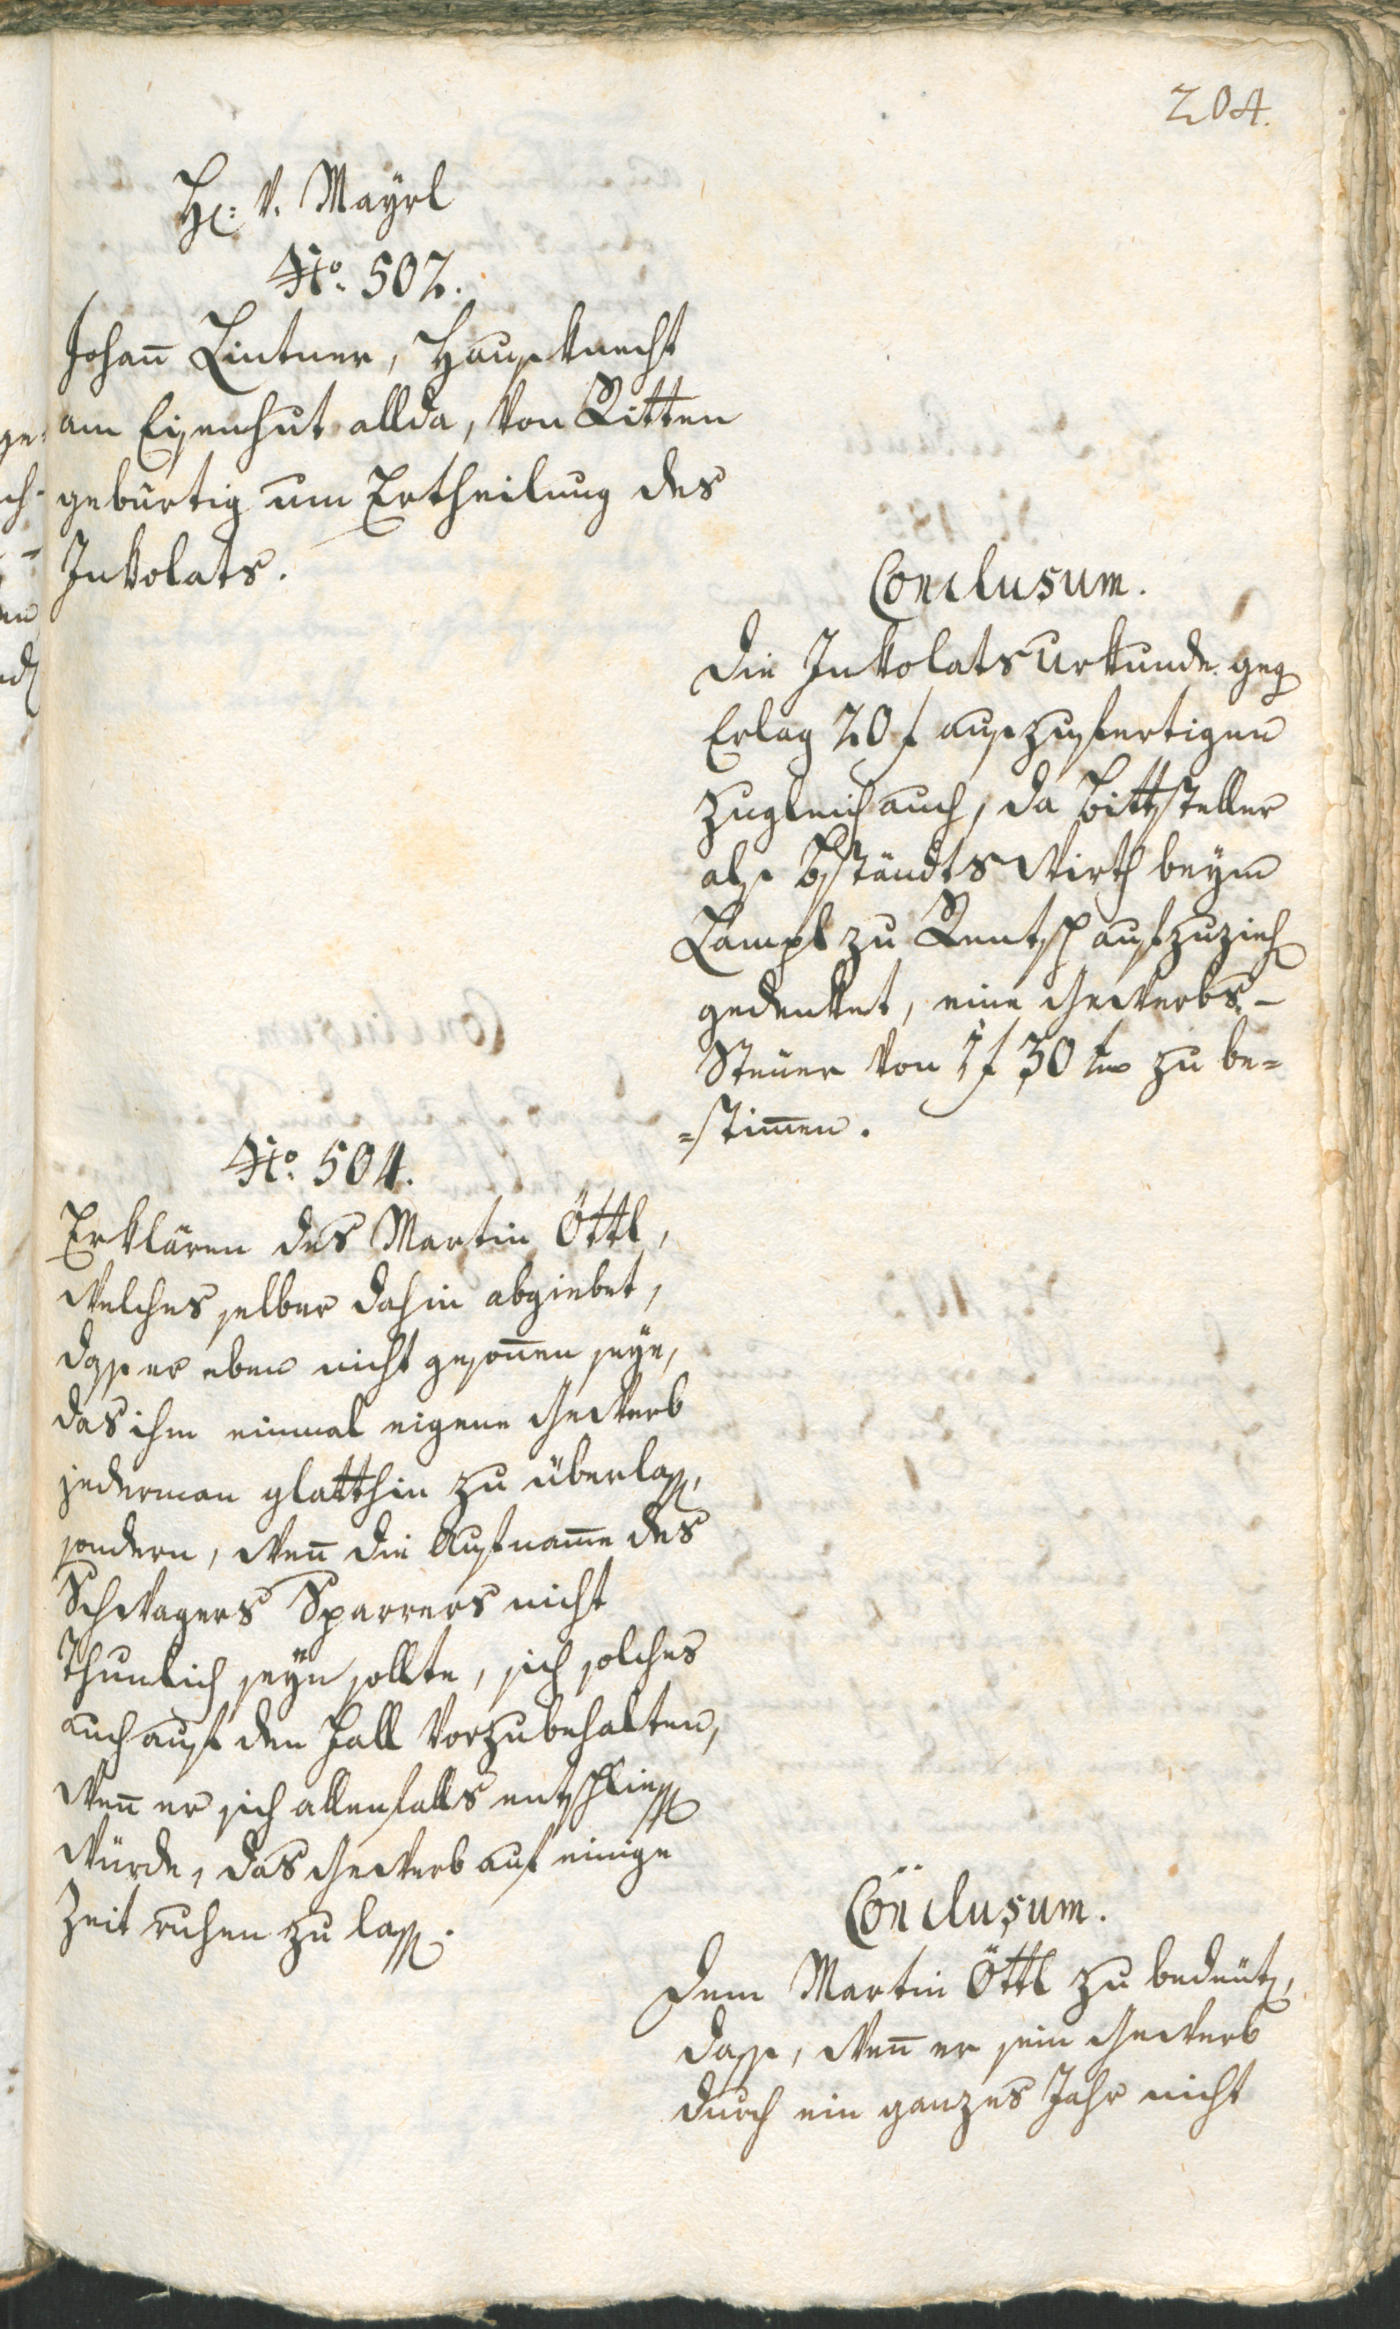 204.
H: v. Mayrl
No. 502.
Johan̄ Lintner, Hausknecht
am Eisenhut allda, von Ritten
gebürtig um Ertheilung des
Inkolats.
Conclusum.
Die Inkolatsurkunde geg
Erlag 20 f auszufertigen
zugleich auch, da Bittsteller
als Bständts Wirth beym
Lampl zu Rentsch aufzuzieh
gedenket, eine Gewerbs-
Steuer von 1 f 30 kr zu be=
=stim̄en.
No. 504.
Erklären des Martin Öttl,
welches selber dahin abgiebet,
dass er eben nicht geson̄en seye,
das ihm einmal eigene Gewerb
jederman glatthin zu überlass,
sondern, wen̄ die Aufnam̄e des
Schwagers Sparrers nicht
thunlich seyn sollte, sich solches
auch auf den Fall vorzubehalten,
wen̄ er sich allenfalls entschliess
würde, das Gewerb auf einige
Zeit ruhen zu lass.
Conclusum.
Dem Martin Öttl zu bedeut,
dass, wen̄ er sein Gewerb
durch ein ganzes Jahr nicht